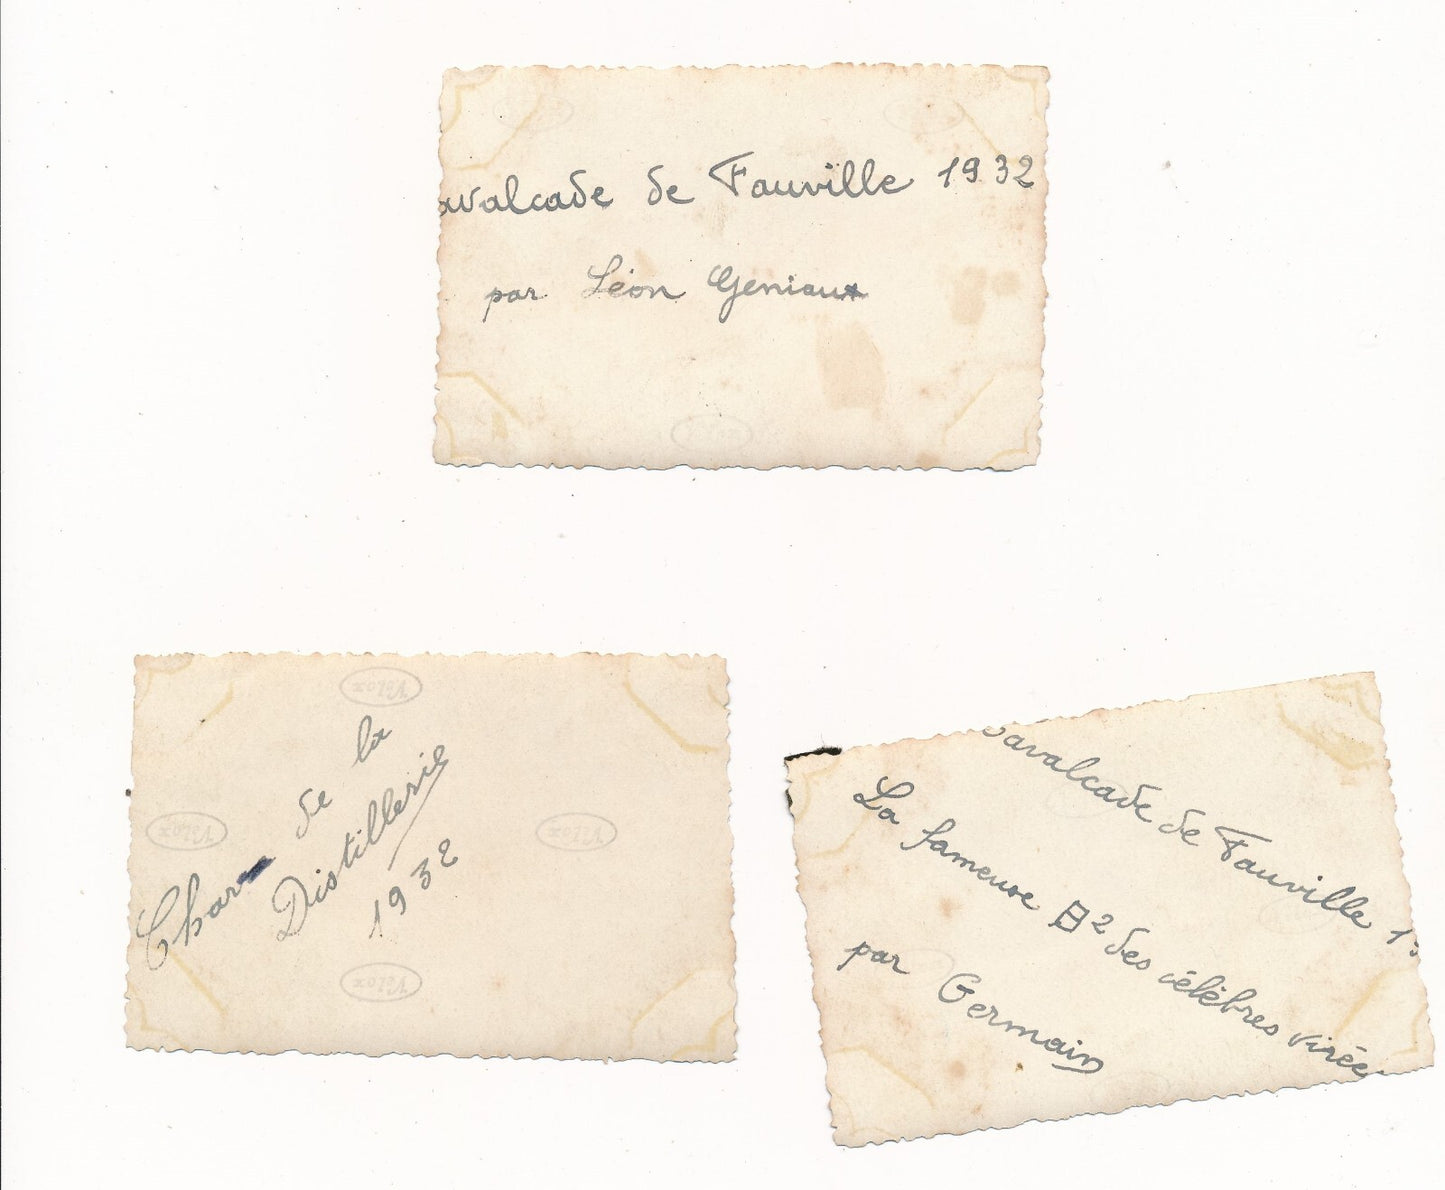 avalcade de Fauville 1932
par Léon Geniaux
Velox
Char de la
Distillerie
1932
Velox
Velox
Velox
Cavalcade de Fauville 19
La fameuse B2 des célèbres virée
par Germain